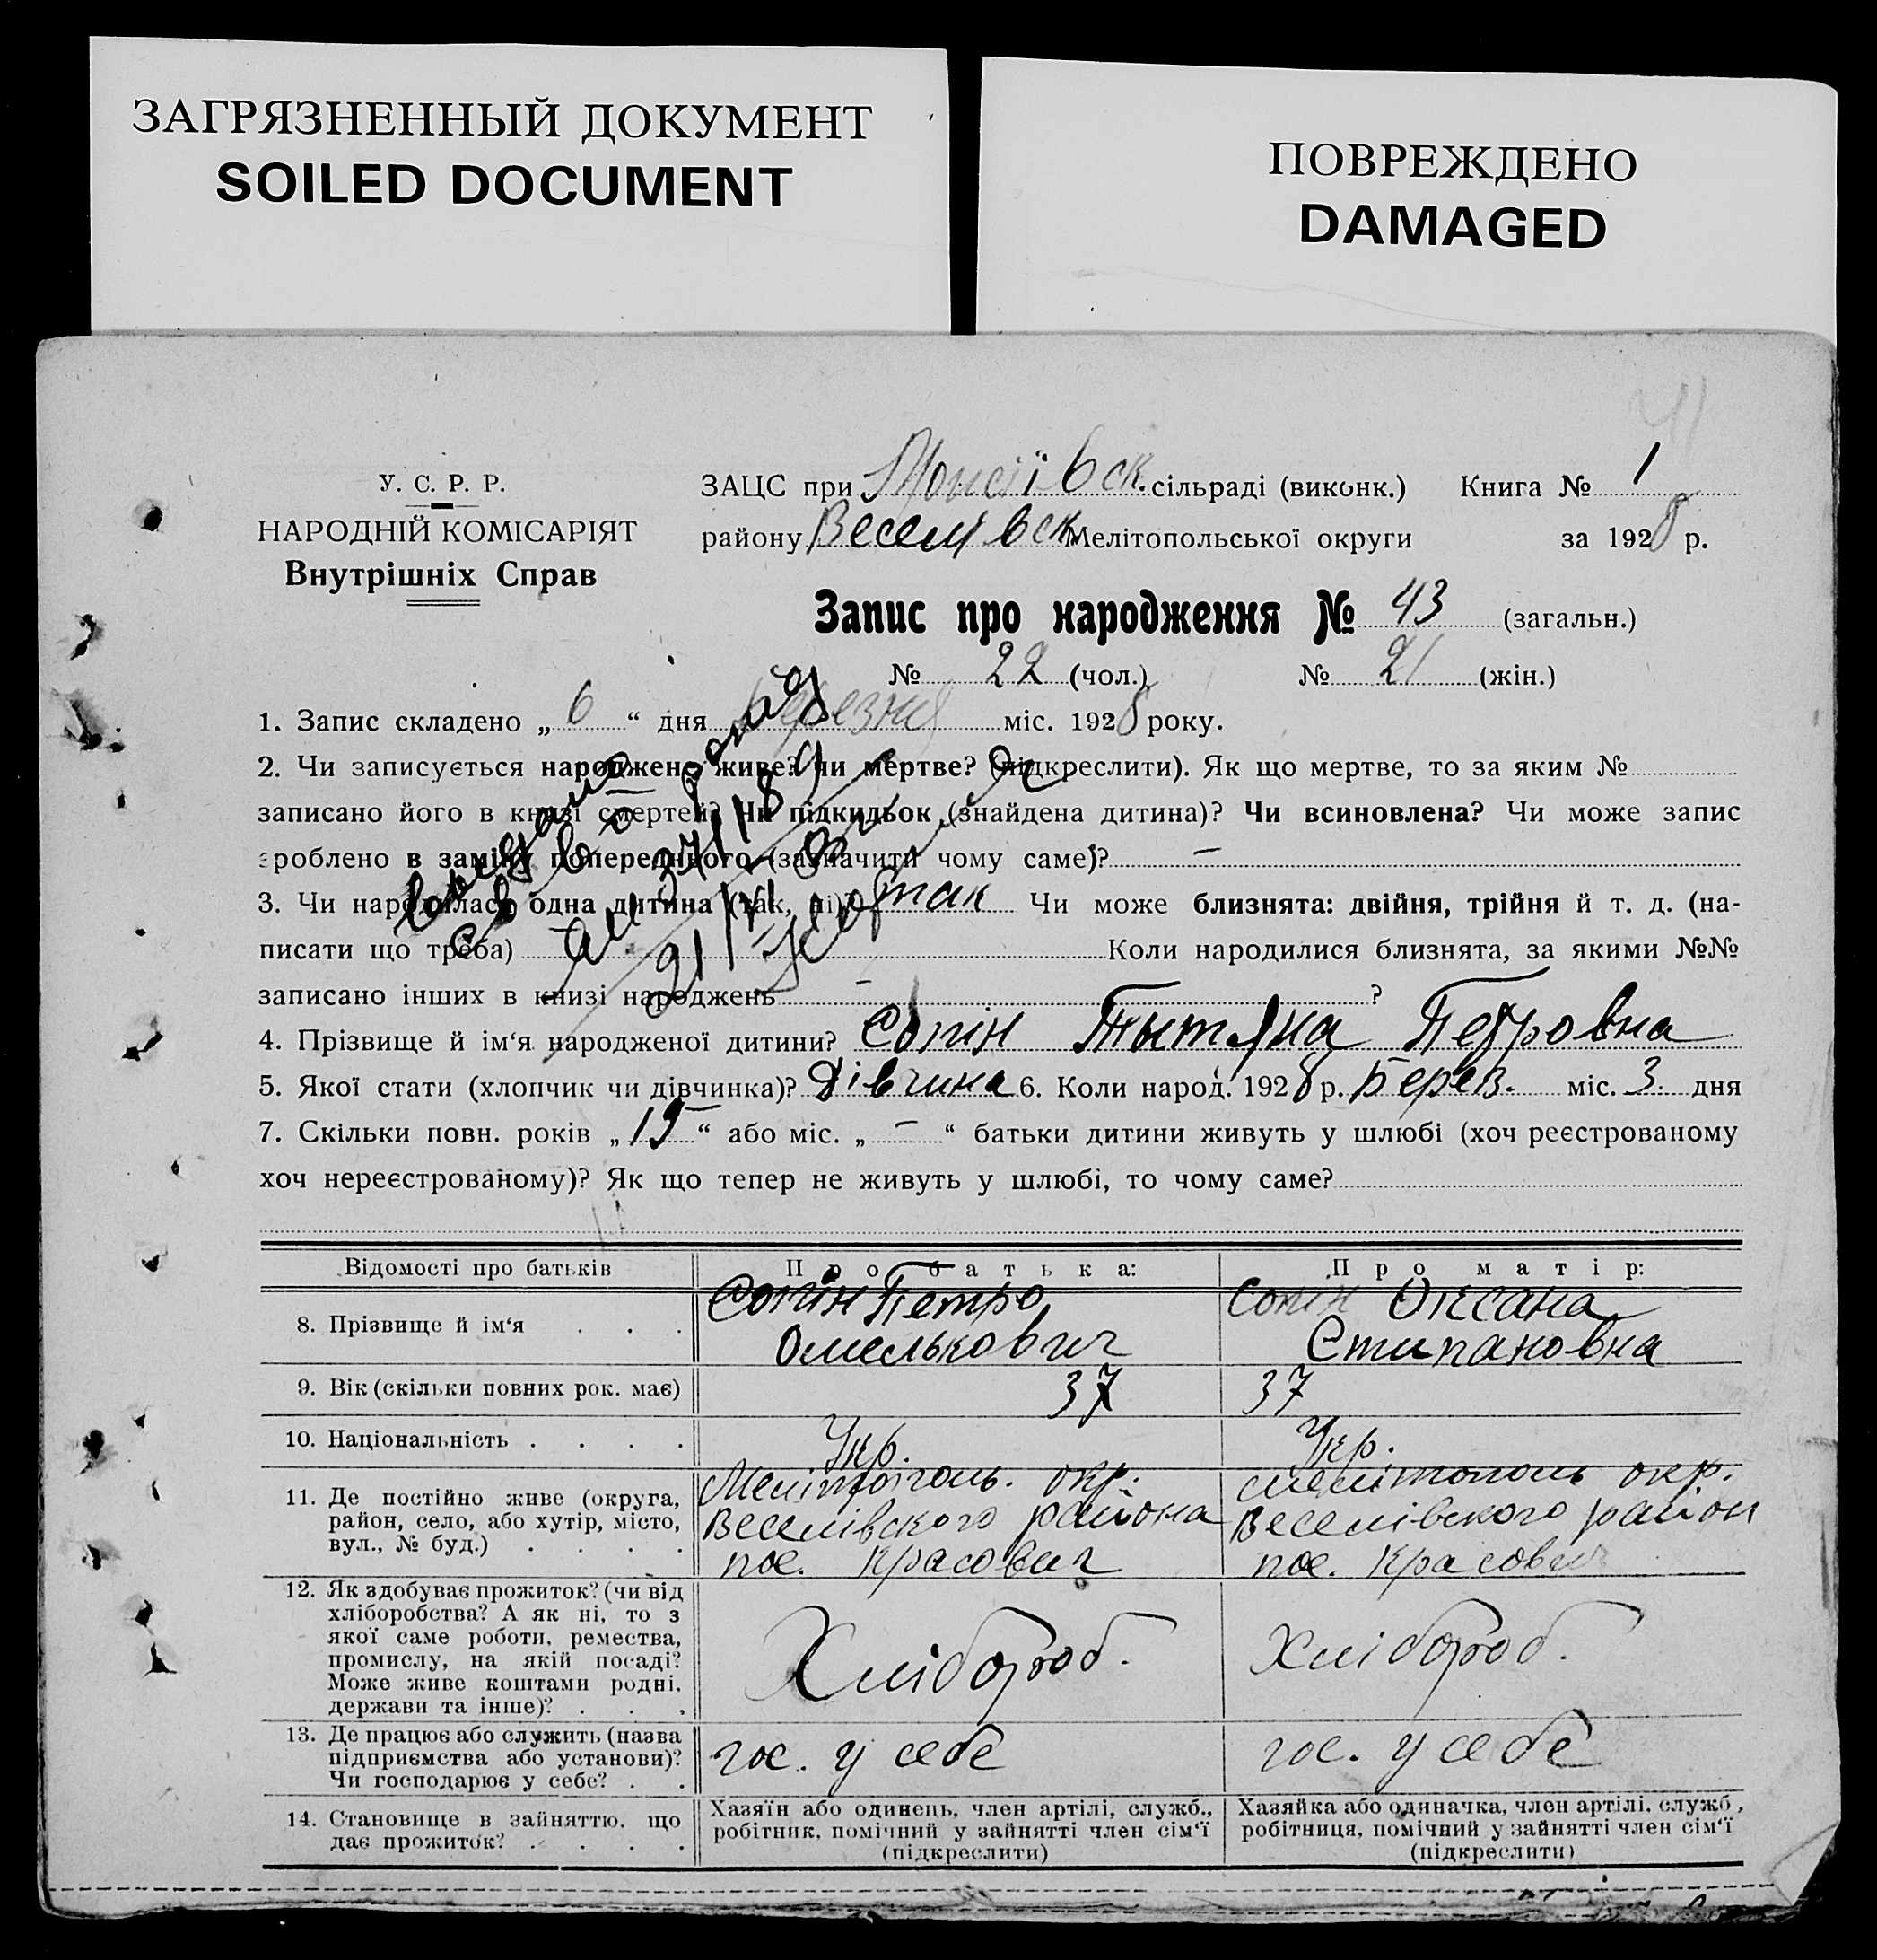 ЗАГРЯЗНЕННЫЙ ДОКУМЕНТ
SOILED DOCUMENT
ПОВРЕЖДЕНО
DAMAGED
У. С. Р. Р.
НАРОДНІЙ КОМІСАРІЯТ
Внутрішніх Справ
ЗАЦС при сільраді (виконк.) Книга № 1
району Веселівск Мелітопольської округи за 1928 р.
Запис про народження № 43 (загальн.)
№ 22 (чол.) № 21 (жін.)
1. Запис складено „ 6 “ дня березня міс. 1928 року.
2. Чи записується народжено живе? чи мертве? (підкреслити). Як що мертве, то за яким №
записано його в книзі смертей? Чи підкидьок (знайдена дитина)? Чи всиновлена? Чи може запис
зроблено в заміну попереднього (зазначити чому саме)? —
3. Чи народилась одна дитина (так, ні)? так Чи може близнята: двійня, трійня й т. д. (на-
писати що треба) Коли народилися близнята, за якими №№
записано інших в книзі народжень — ?
4. Прізвище й ім‘я народженої дитини? Сопін Тытяна Петровна
5. Якої стати (хлопчик чи дівчинка)? Дівчина 6. Коли народ. 1928 р. Берез. міс. 3. дня
7. Скільки повн. років „ 15 “ або міс. „ — “ батьки дитини живуть у шлюбі (хоч реєстрованому
хоч нереєстрованому)? Як що тепер не живуть у шлюбі, то чому саме?
Відомості про батьків Про батька: Про матір:
8. Прізвище й ім‘я . . . Сопін Петро Омелькович Сопін Оксана Стипановна
9. Вік (скільки повних рок. має) 37 37
10. Національність . . . . Укр. Укр.
11. Де постійно живе (округа, Мелітополь. окр. Мелітополь окр.
район, село, або хутір, місто, Веселівского района Веселівского район
вул., № буд.) . . . . пос. Красович пос.
12. Як здобуває прожиток? (чи від
хліборобства? А як ні, то з
якої саме роботи, ремества,
промислу, на якій посаді? Хлібороб. Хлібороб.
Може живе коштами родні,
держави та інше)? . . .
13. Де працює або служить (назва
підприємства або установи)? гос. у себе гос. у себе
Чи господарює у себе? . .
14. Становище в зайняттю, що Хазяїн або одинець, член артілі, служб., Хазяйка або одиначка, член артілі, служб.,
дає прожиток? . . . . робітник, помічний у зайнятті член сім‘ї робітниця, помічний у зайнятті член сім‘ї
(підкреслити) (підкреслити)